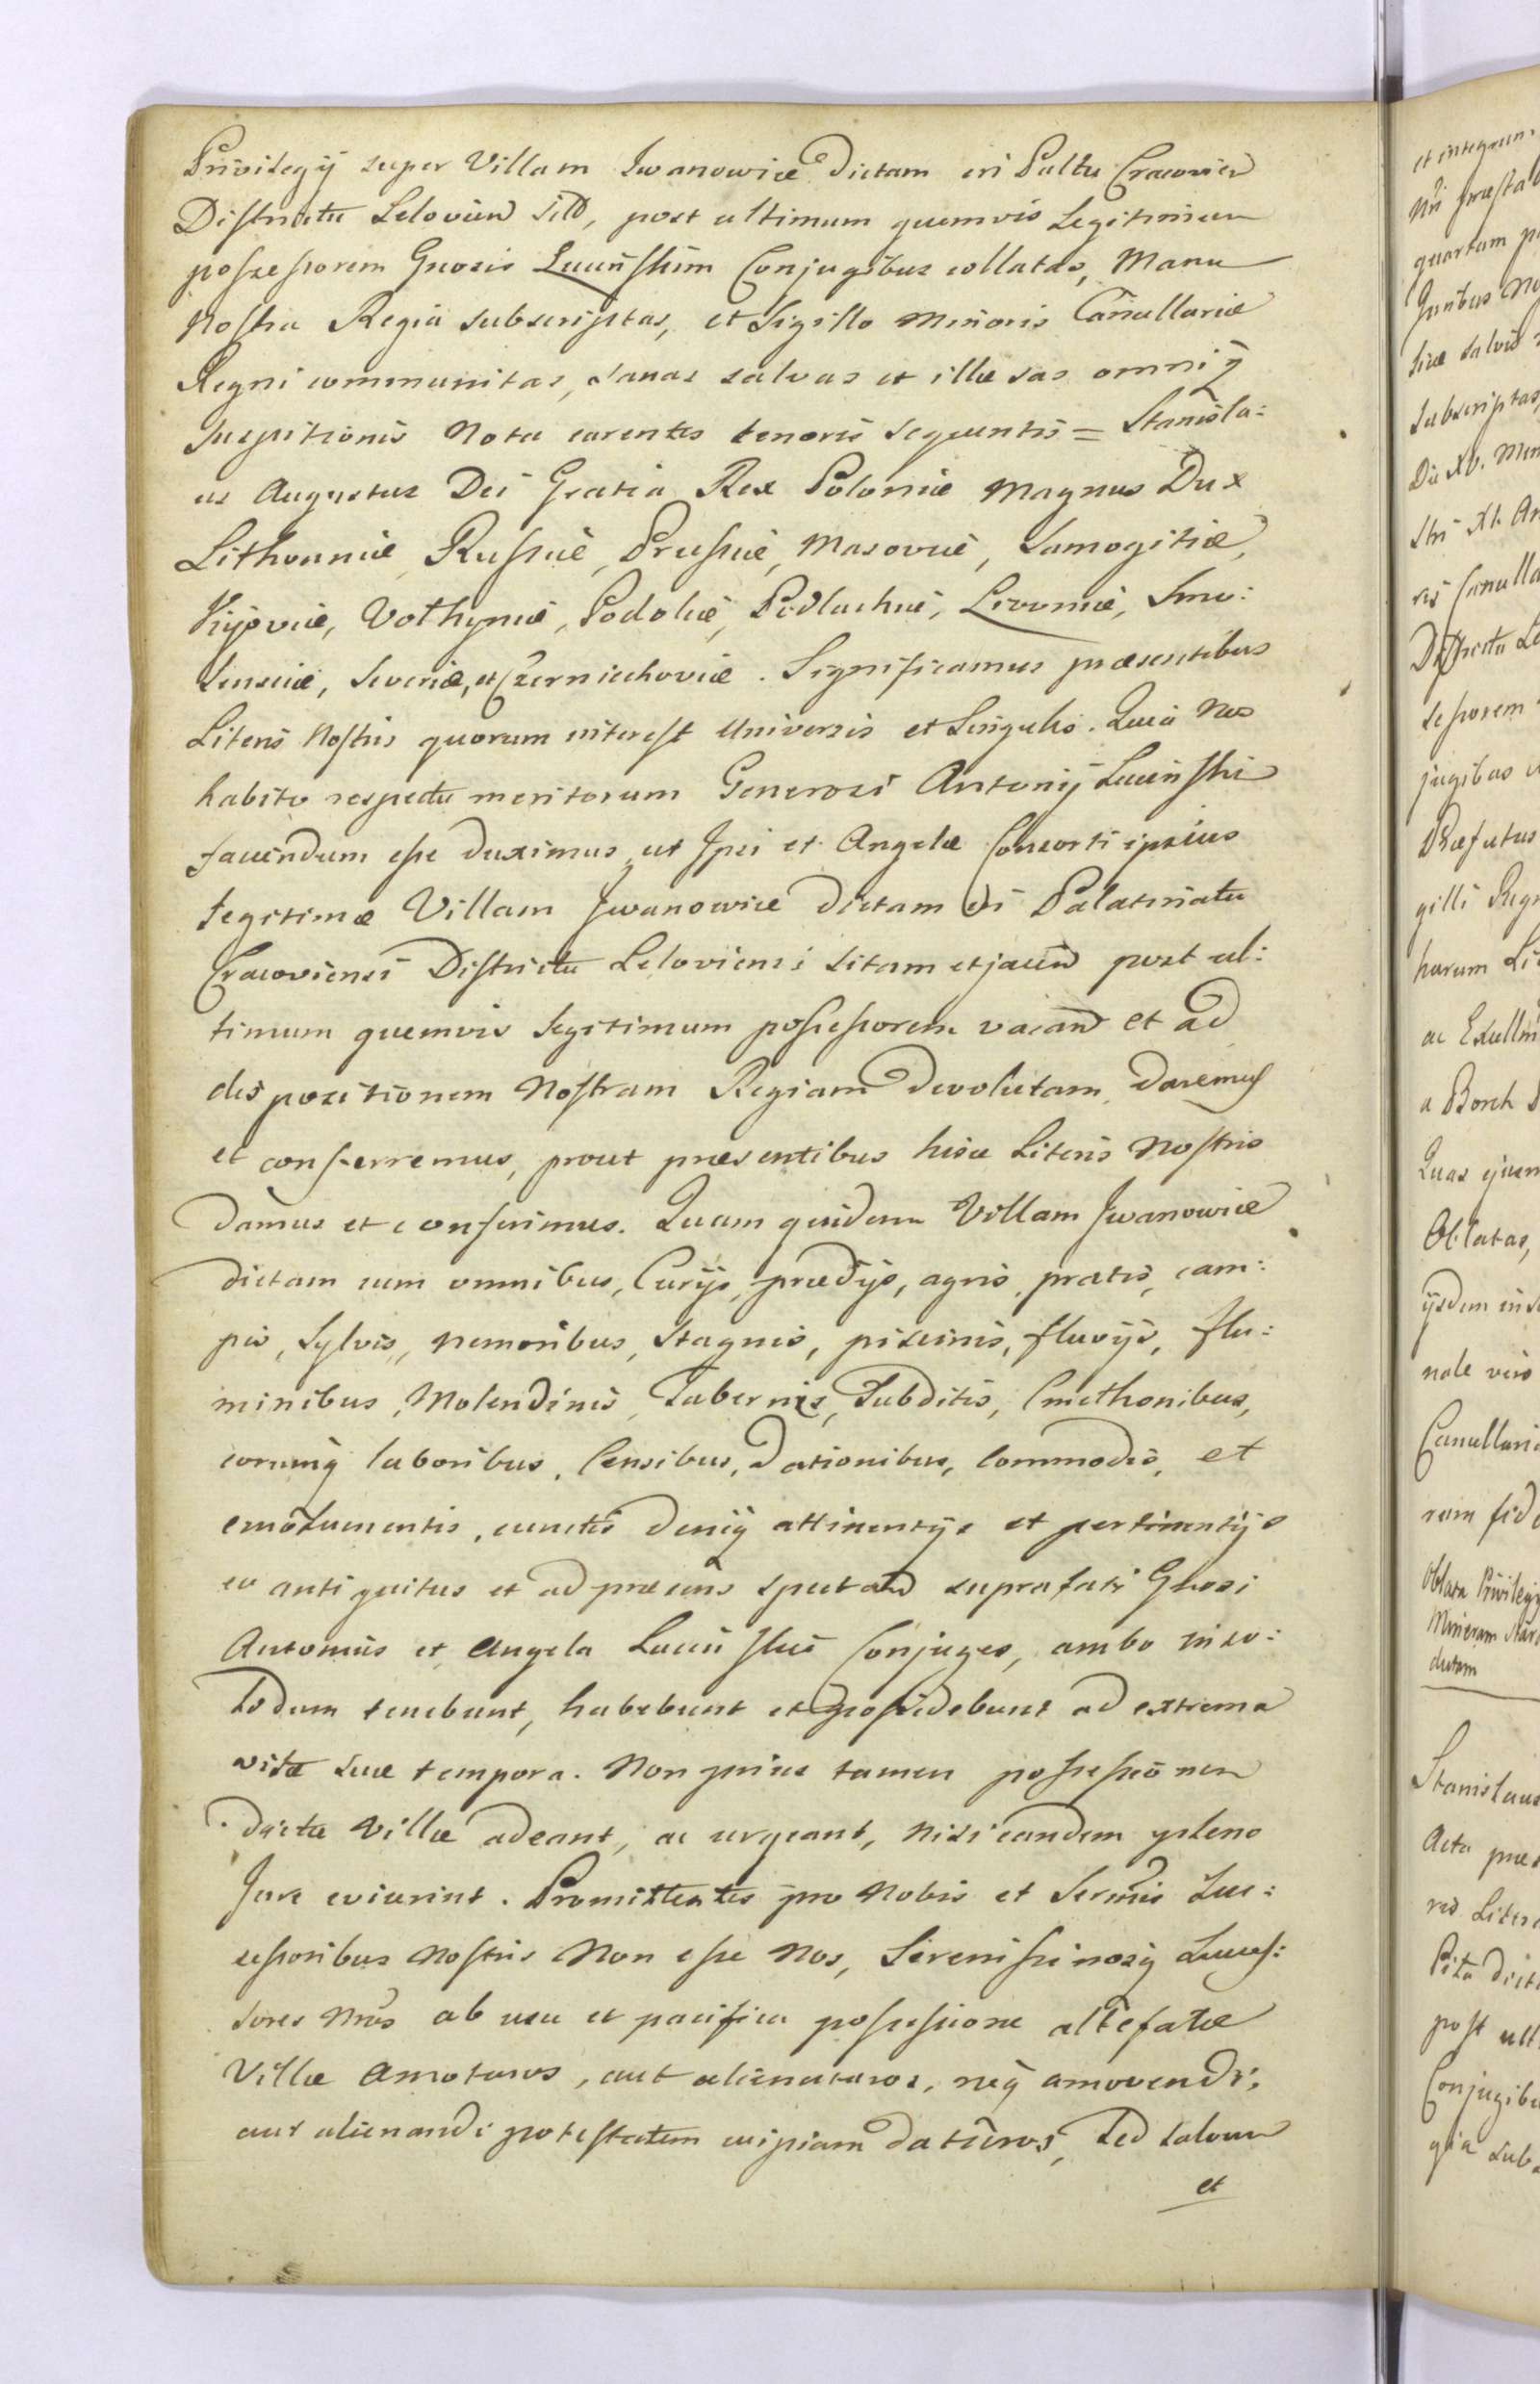 Privilegij super Villam Iwanowice dictam in Paltu Cracovien
Districtu Lelovien sito, post ultimum quemvis Legitimum
possessorem Gnosis Lucińskim Conjugibus collatas, Manu
Nostra Regia subscriptas, et Sigillo Minoris Cancellariæ
Regni communitas, sanas salvas et illæsas omniq
suspitionis Nota carentes tenoris sequentis = Stanisla:
us Augustus Dei Gratia Rex Poloniæ Magnus Dux
Lithvaniæ, Russiæ, Prussiæ, Masoviæ, Samogitiæ,
Kijoviæ, Volhyniæ, Podoliæ, Podlachiæ, Livoniæ, Smo:
lensciæ, Severiæ, et Czerniechoviæ. Significamus præsentibus
Literis Nostris quorum interest Universis et Singulis. Quia Nos
habito respectu meritorum Generosi Antonij Luciński
faciendum esse duximus, ut Ipsi et Angelæ Consorti ipsius
legitimæ Villam Iwanowice dictam in Palatinatu
Cracoviensi Districtu Leloviensi sitam et jacen post ul:
timum quemvis legitimum possessorem vacan et ad
dispozitionem Nostram Regiam devolutam, daremus
et conferremus, prout præsentibus hisce Literis Nostris
damus et conferimus. Quam quidem Villam Iwanowice
dictam cum omnibus, Curijs, prædijs, agris, pratis, cam:
pis, Sylvis, nemoribus, Stagnis, piscinis, fluvijs, flu:
minibus, Molendinis, Tabernis, Subditis, Cmethonibus,
eorumq laboribus, Censibus, dationibus, Commodis, et
emolumentis, cunctis deniq attinentijs et pertinentijs
ex antiquitus et ad præsens spectan suprafati Gnosi
Antonius et Angela Lucińskie Conjuges, ambo inso:
lidum tenebunt, habebunt et possidebunt ad extrema
vitæ suæ tempora. Non prius tamen possessionem
dictæ Villæ adeant, ac urgeant, nisi eandem pleno
Jure evicerint. Promittentes pro Nobis et Sermis Suc:
cessoribus Nostris Non esse Nos, Serenissimosq Succes:
sores Nros ab usu et pacifica possessione altefatæ
Villæ amoturos, aut alienaturos, neq amovendi,
aut alienandi potestatem cuipiam daturos, Sed salvum
et